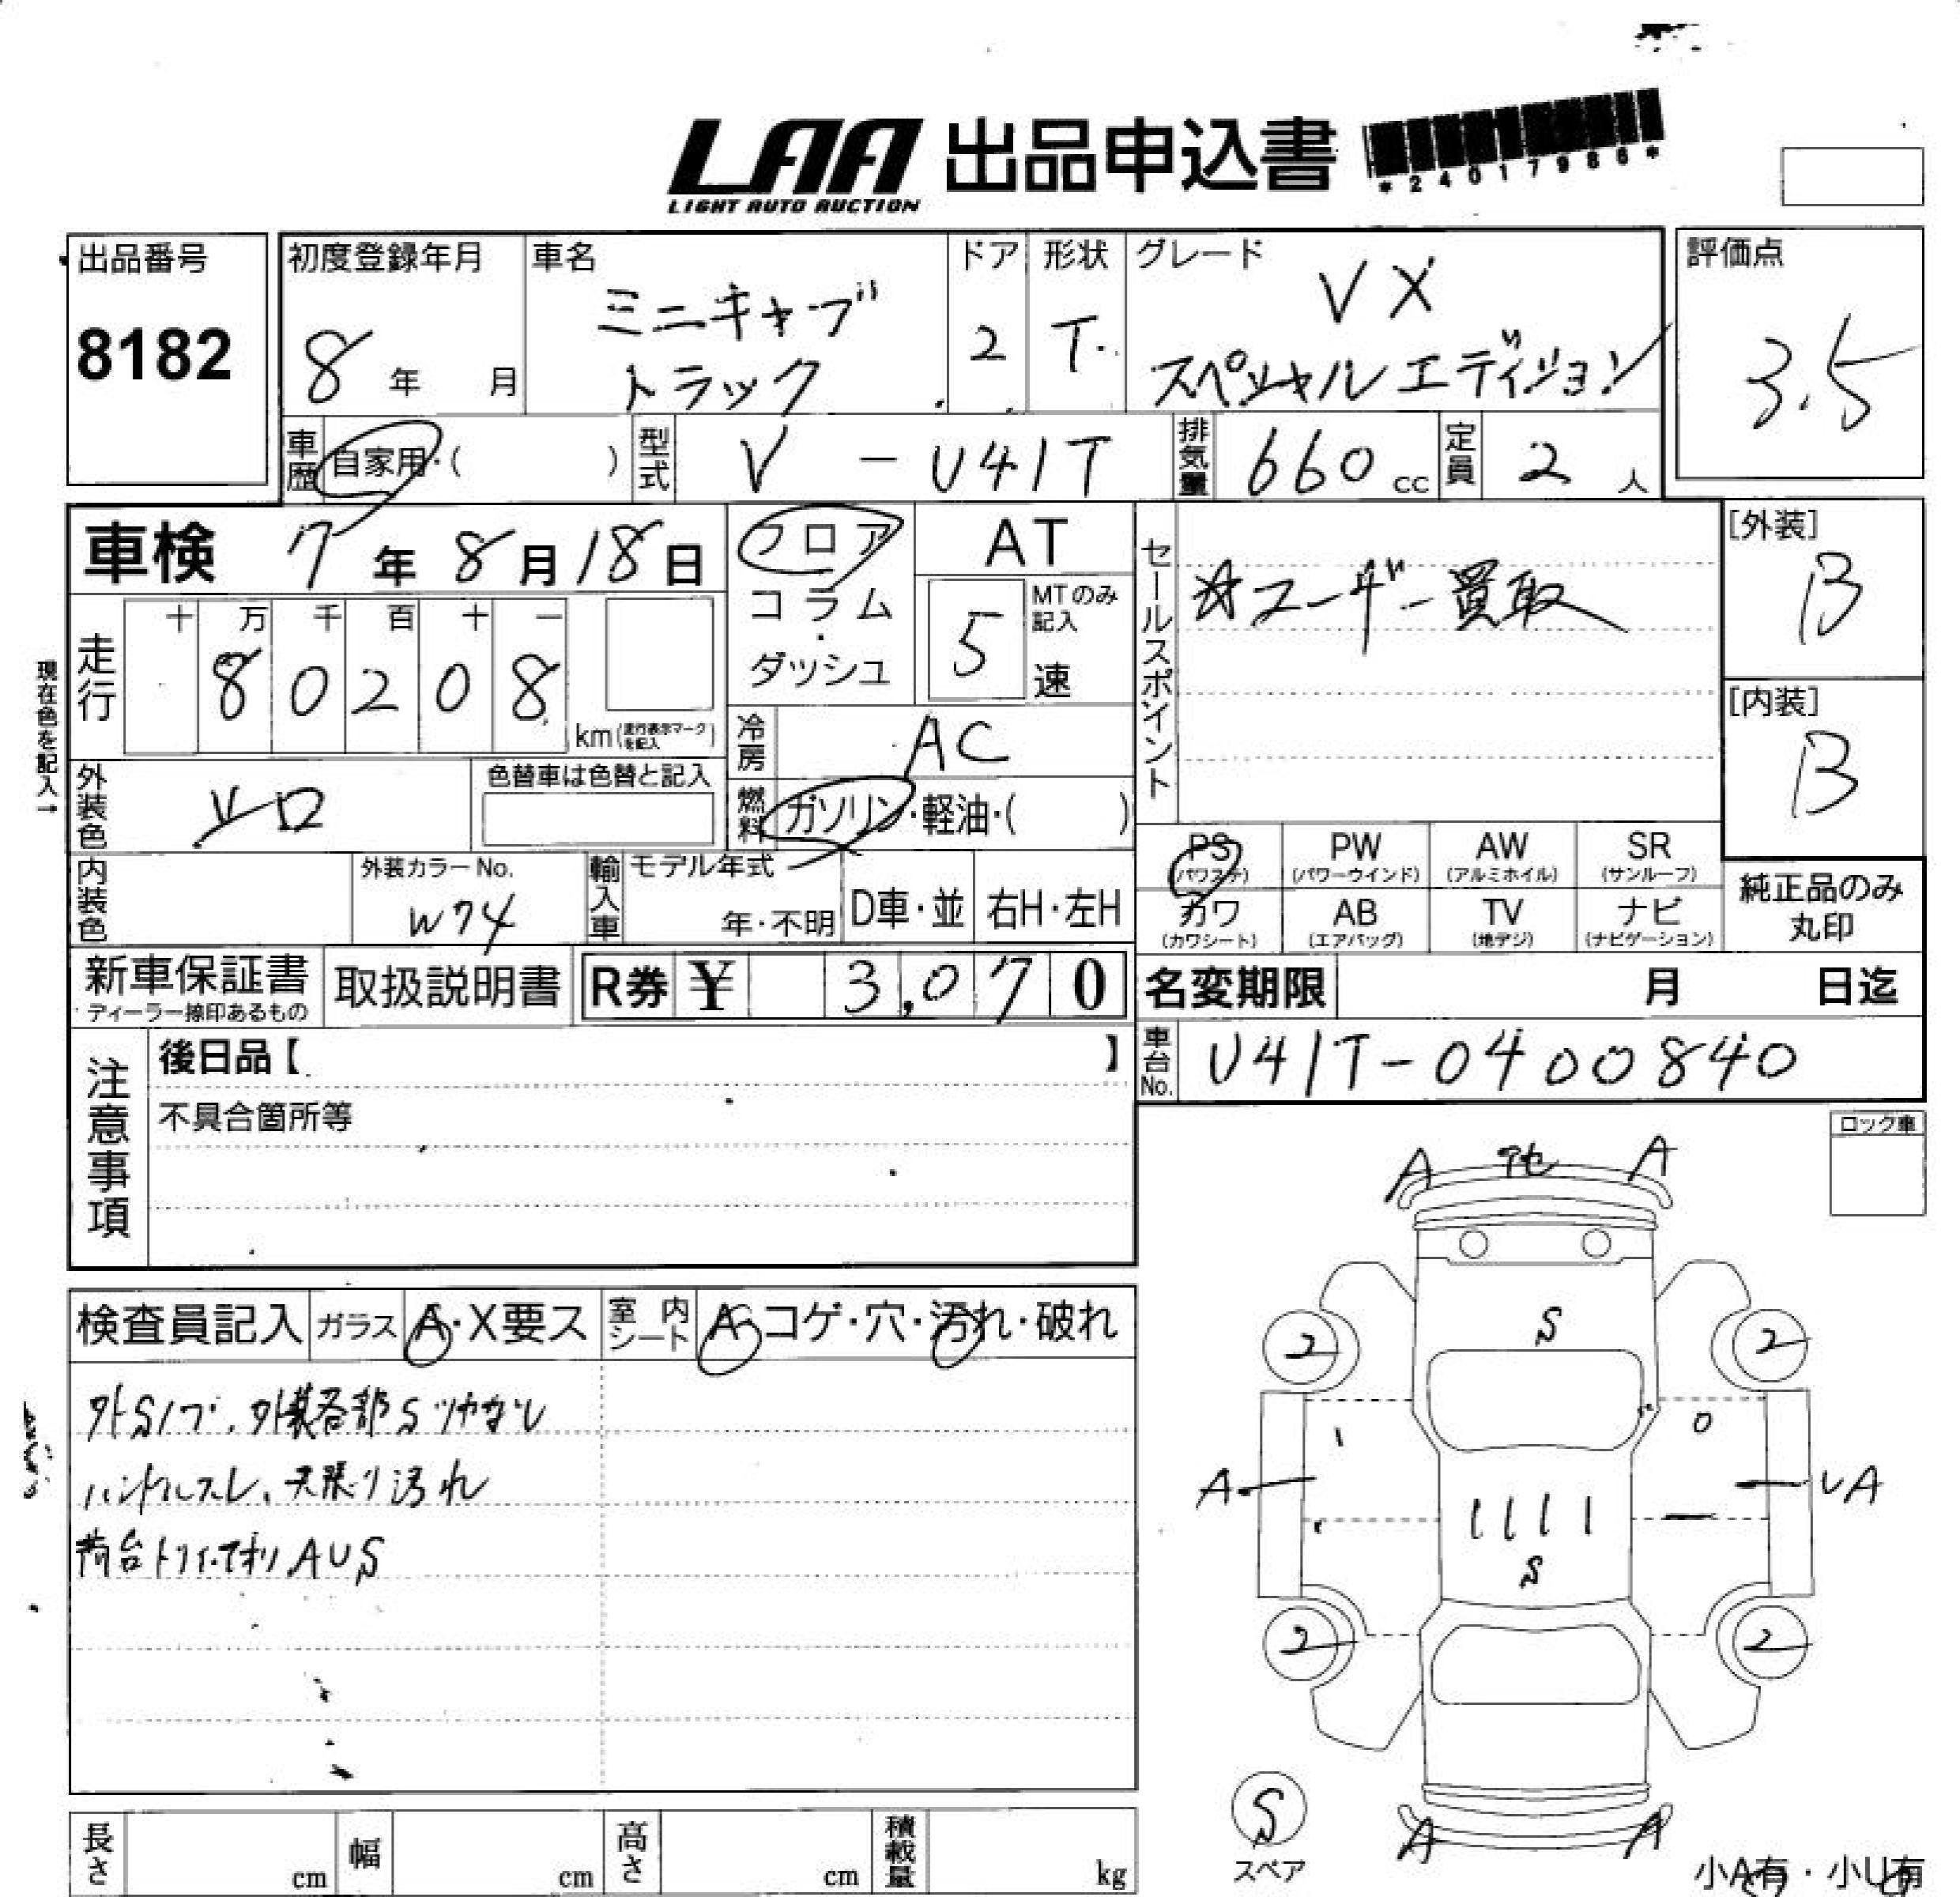 LAA 出品申込書
LIGHT AUTO AUCTION
*24017986*
出品番号
8182
初度登録年月
8年 月
車名
ミニキャブ
トラック
ドア
2
形状
T
グレード
VX
スペシャルエディション
評価点
3.5
車歴
自家用・( )
型式
V - U41T
排気量
660cc
定員
2人
車検 7年8月18日
フロア
コラム
・
ダッシュ
AT
5
MTのみ記入
速
セールスポイント
☆ユーザー買取
[外装]
B
[内装]
B
現在色を記入→
走行
十 万 千 百 十 一
8 0 2 0 8
km(走行表示マークを記入)
冷房
AC
外装色
シロ
色替車は色替と記入
燃料
ガソリン・軽油・( )
PS
(パワステ)
PW
(パワーウインド)
AW
(アルミホイル)
SR
(サンルーフ)
カワ
(カワシート)
AB
(エアバッグ)
TV
(地デジ)
ナビ
(ナビゲーション)
純正品のみ
丸印
内装色
外装カラーNo.
W74
輸入車
モデル年式
年・不明
D車・並
右H・左H
新車保証書
ディーラー捺印あるもの
取扱説明書
R券 ¥ 3,070
名変期限 月 日迄
車台No.
U41T-0400840
注意事項
後日品【 】
不具合箇所等
ロック車
検査員記入
ガラス
A・X要ス
室内シート
A・コゲ・穴・汚れ・破れ
外装各部Sツヤなし
ハンドルスレ、天張り汚れ
荷台トリイ・アオリAUS
A
A
S
2
2
A
UA
S
2
2
S
スペア
A
A
小A有・小U有
長さ
cm
幅
cm
高さ
cm
積載量
kg